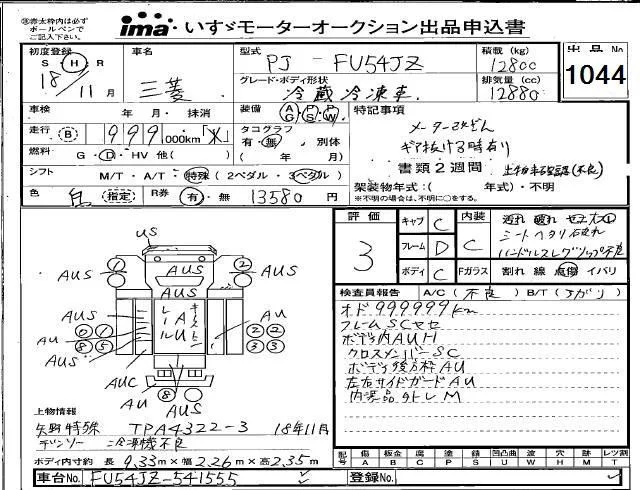 ※赤太枠内は必ず
ボールペンで
ご記入下さい。
ima いすゞモーターオークション出品申込書
初度登録 車名 型式 PJ - FU54JZ 積載 (kg) 出品No
S H R 三菱 12800 1044
18/11月 グレード・ボディ形状 冷蔵冷凍車 排気量 (cc) 12880
車検 年 月・抹消 装備 AG PS PW 特記事項
走行 B 999,000km タコグラフ メーター
有・無, 別体 ギア抜ける時有り
燃料 G・D・HV 他( ) ( 年 月) 書類2週間
シフト M/T・A/T・特殊 (2ペダル・3ペダル) 架装物年式:( 年式)・不明
色 (指定) R券 有・無 13580 円 ※不明の場合は、不明に○をする。
評価 3
キャブ C
フレーム D
ボディ C
内装 C 汚れ 破れ
シートヘタリ
Fガラス 割れ 線 点傷 イバリ
検査員報告 A/C (不良) B/T (
オド 999999km
フレームSCサビ
ボディ内AUH
クロスメンバーSC
ボディ後方枠AU
左右サイドガードAU
内装品外トレM
US
AUS AUS AUS
AUS AUS
AU AU
AUS
AUC
AU AUS
上物情報
矢野特殊 TPA4322-3 18年11月
デンソー 冷凍機不良
ボディ内寸約 長 9.33m×幅 2.26m×高 2.35m
記号 傷 A 板金 B 腐 C 錆 S 凹凸曲 U 波 W 穴 H 跡 M レツ割 T
車台No. FU54JZ-541555 登録No.